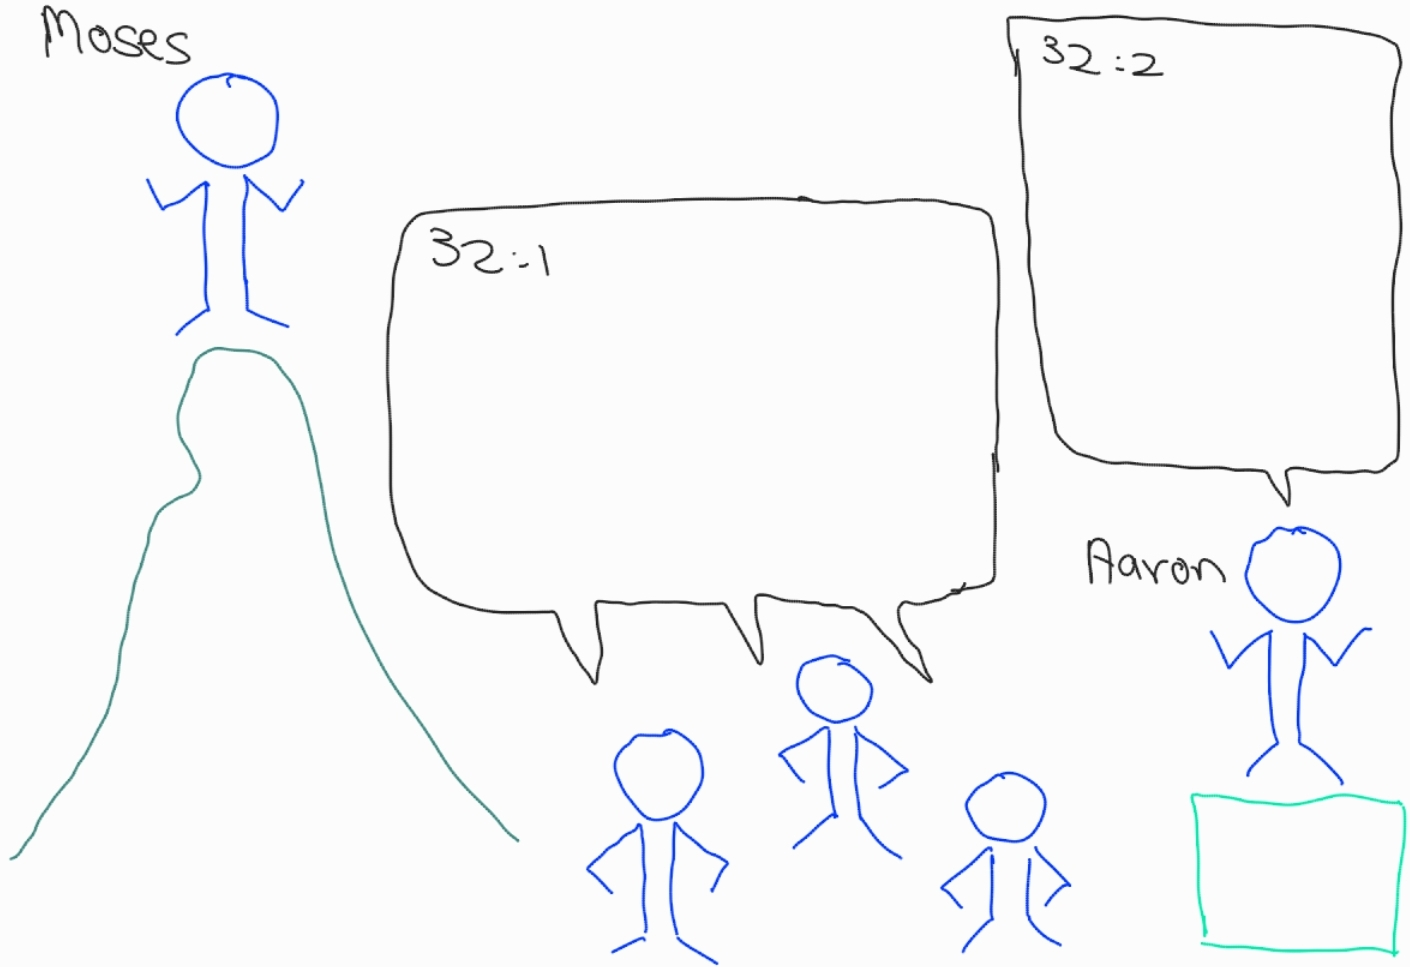 Moses
32:1
32:2
Aaron